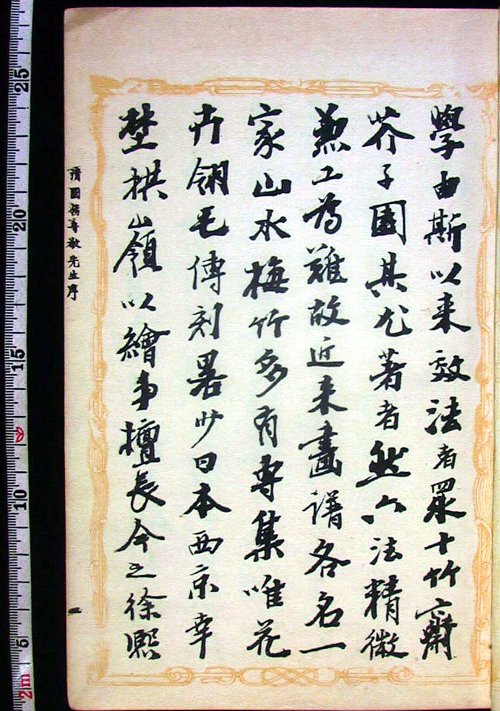 學由斯以来效法者眾十竹齋
芥子園其尤著者然六法精微
兼工爲難故近来畫譜各名一
家山水梅竹多有專集唯花
卉翎毛傳刻畧少日本西京幸
埜楳嶺以繪事擅長今之徐熙
先生序
25
20
15
10
5
2m